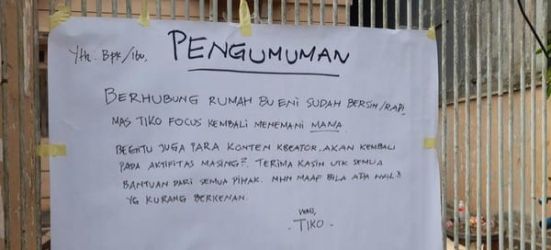 PENGUMUMAN
Yth. Bpk/Ibu,
BERHUBUNG RUMAH BU ENI SUDAH BERSIH/RAPI
MAS TIKO FOCUS KEMBALI MENEMANI MAMA
BEGITU JUGA PARA KONTEN KREATOR, AKAN KEMBALI
PADA AKTIFITAS MASING². TERIMA KASIH UTK SEMUA
BANTUAN DARI SEMUA PIHAK. MHN MAAF BILA ADA
YG KURANG BERKENAN.
TIKO